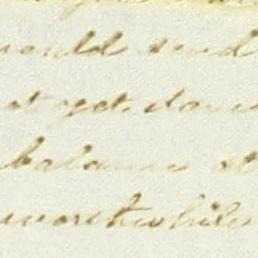 would send
at yet done
balance at
worthwhile